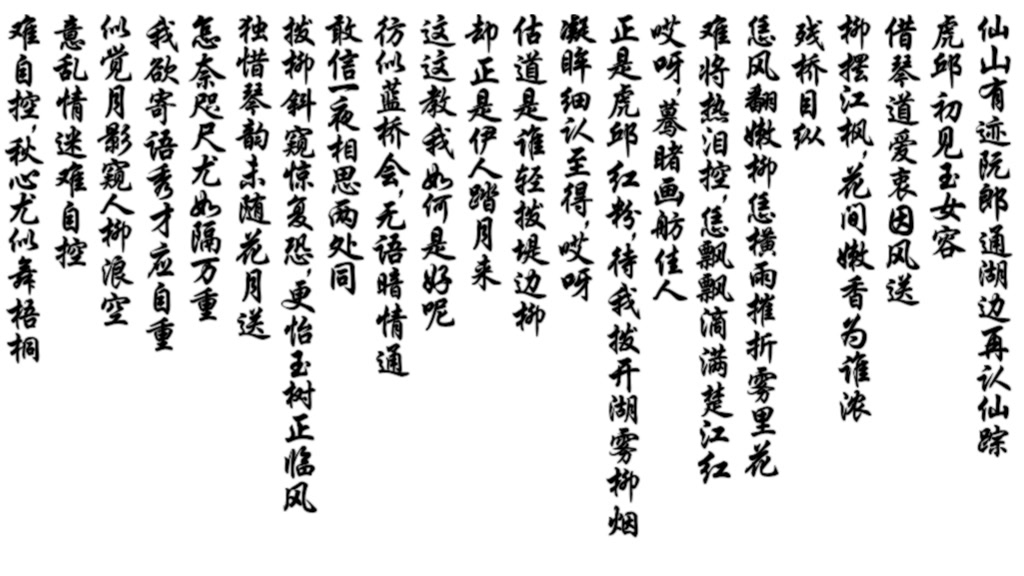 仙山有迹阮郎通湖边再认仙踪
虎邱初见玉女容
借琴道爱衷因风送
柳摆江枫,花间嫩香为谁浓
残桥目纵
恁风翻嫩柳恁横雨摧折雾里花
难将热泪控,恁飘飘滴满楚江红
哎呀,蓦睹画舫佳人
正是虎邱红粉,待我拨开湖雾柳烟
凝眸细认至得,哎呀
估道是谁轻拨堤边柳
却正是伊人踏月来
这这教我如何是好呢
彷似蓝桥会,无语暗情通
敢信一夜相思两处同
拨柳斜窥惊复恐,更怡玉树正临风
独惜琴韵未随花月送
怎奈咫尺尤如隔万重
我欲寄语秀才应自重
似觉月影窥人柳浪空
意乱情迷难自控
难自控,秋心尤似舞梧桐